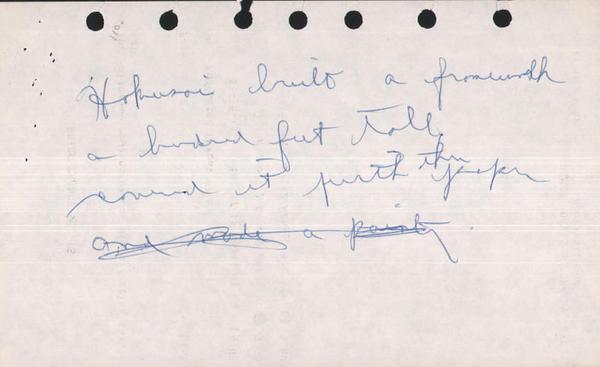 Hokusai built a framework
a hundred feet tall
covered it with thin paper
and made a painty